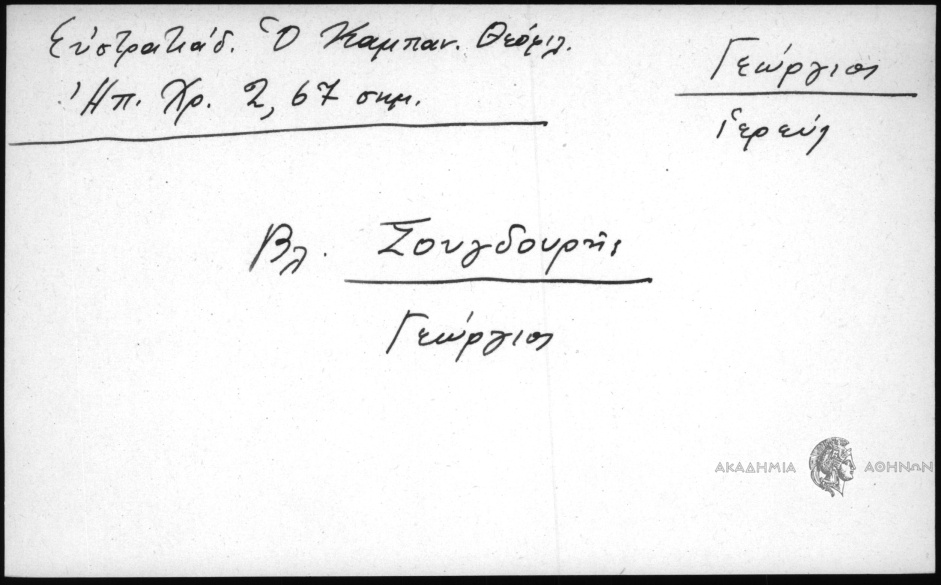 Εὐστρατιάδ. Ὁ Καμπαν. Θεόφιλ.
Ἠπ. Χρ. 2, 67 σημ.
Γεώργιος
Ἱερεύς
βλ. Σουγδουρῆς
Γεώργιος
ΑΚΑΔΗΜΙΑ ΑΘΗΝΩΝ